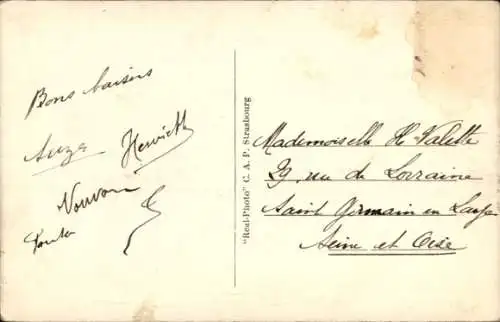 Bons baisers
Suze Henriette
"Real-Photo" C. A. P. Strasbourg
Mademoiselle H. Valette
29, rue de Lorraine
Saint Germain en Laye
Seine et Oise